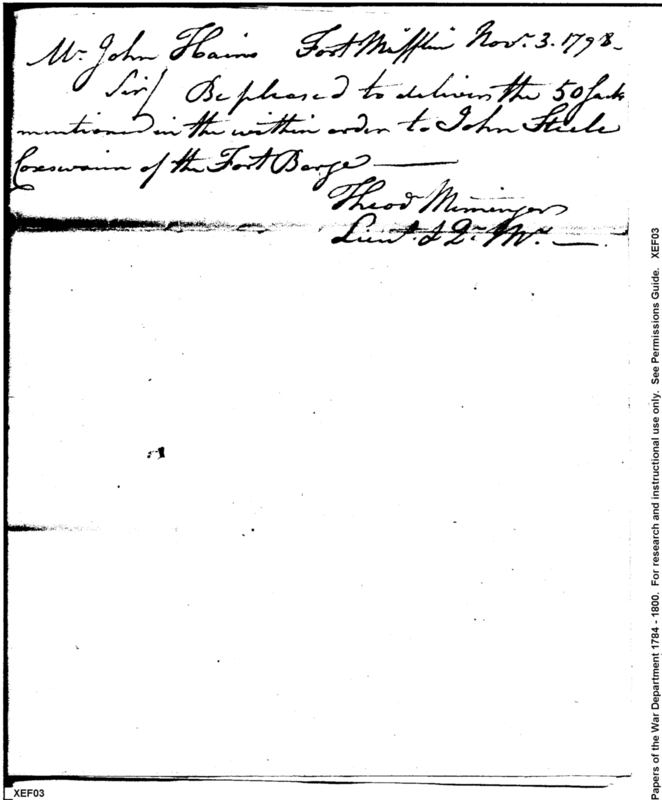 Mr John Hains Fort Mifflin Novr. 3. 1798-
Sir/ Be pleased to deliver the 50 Sacks
mentioned in the within order to John Steele
Coxswain of the Fort Barge —
Theod Memminger
Lieut. & Qr. Mr. —
Papers of the War Department 1784 - 1800. For research and instructional use only. See Permissions Guide. XEF03
XEF03